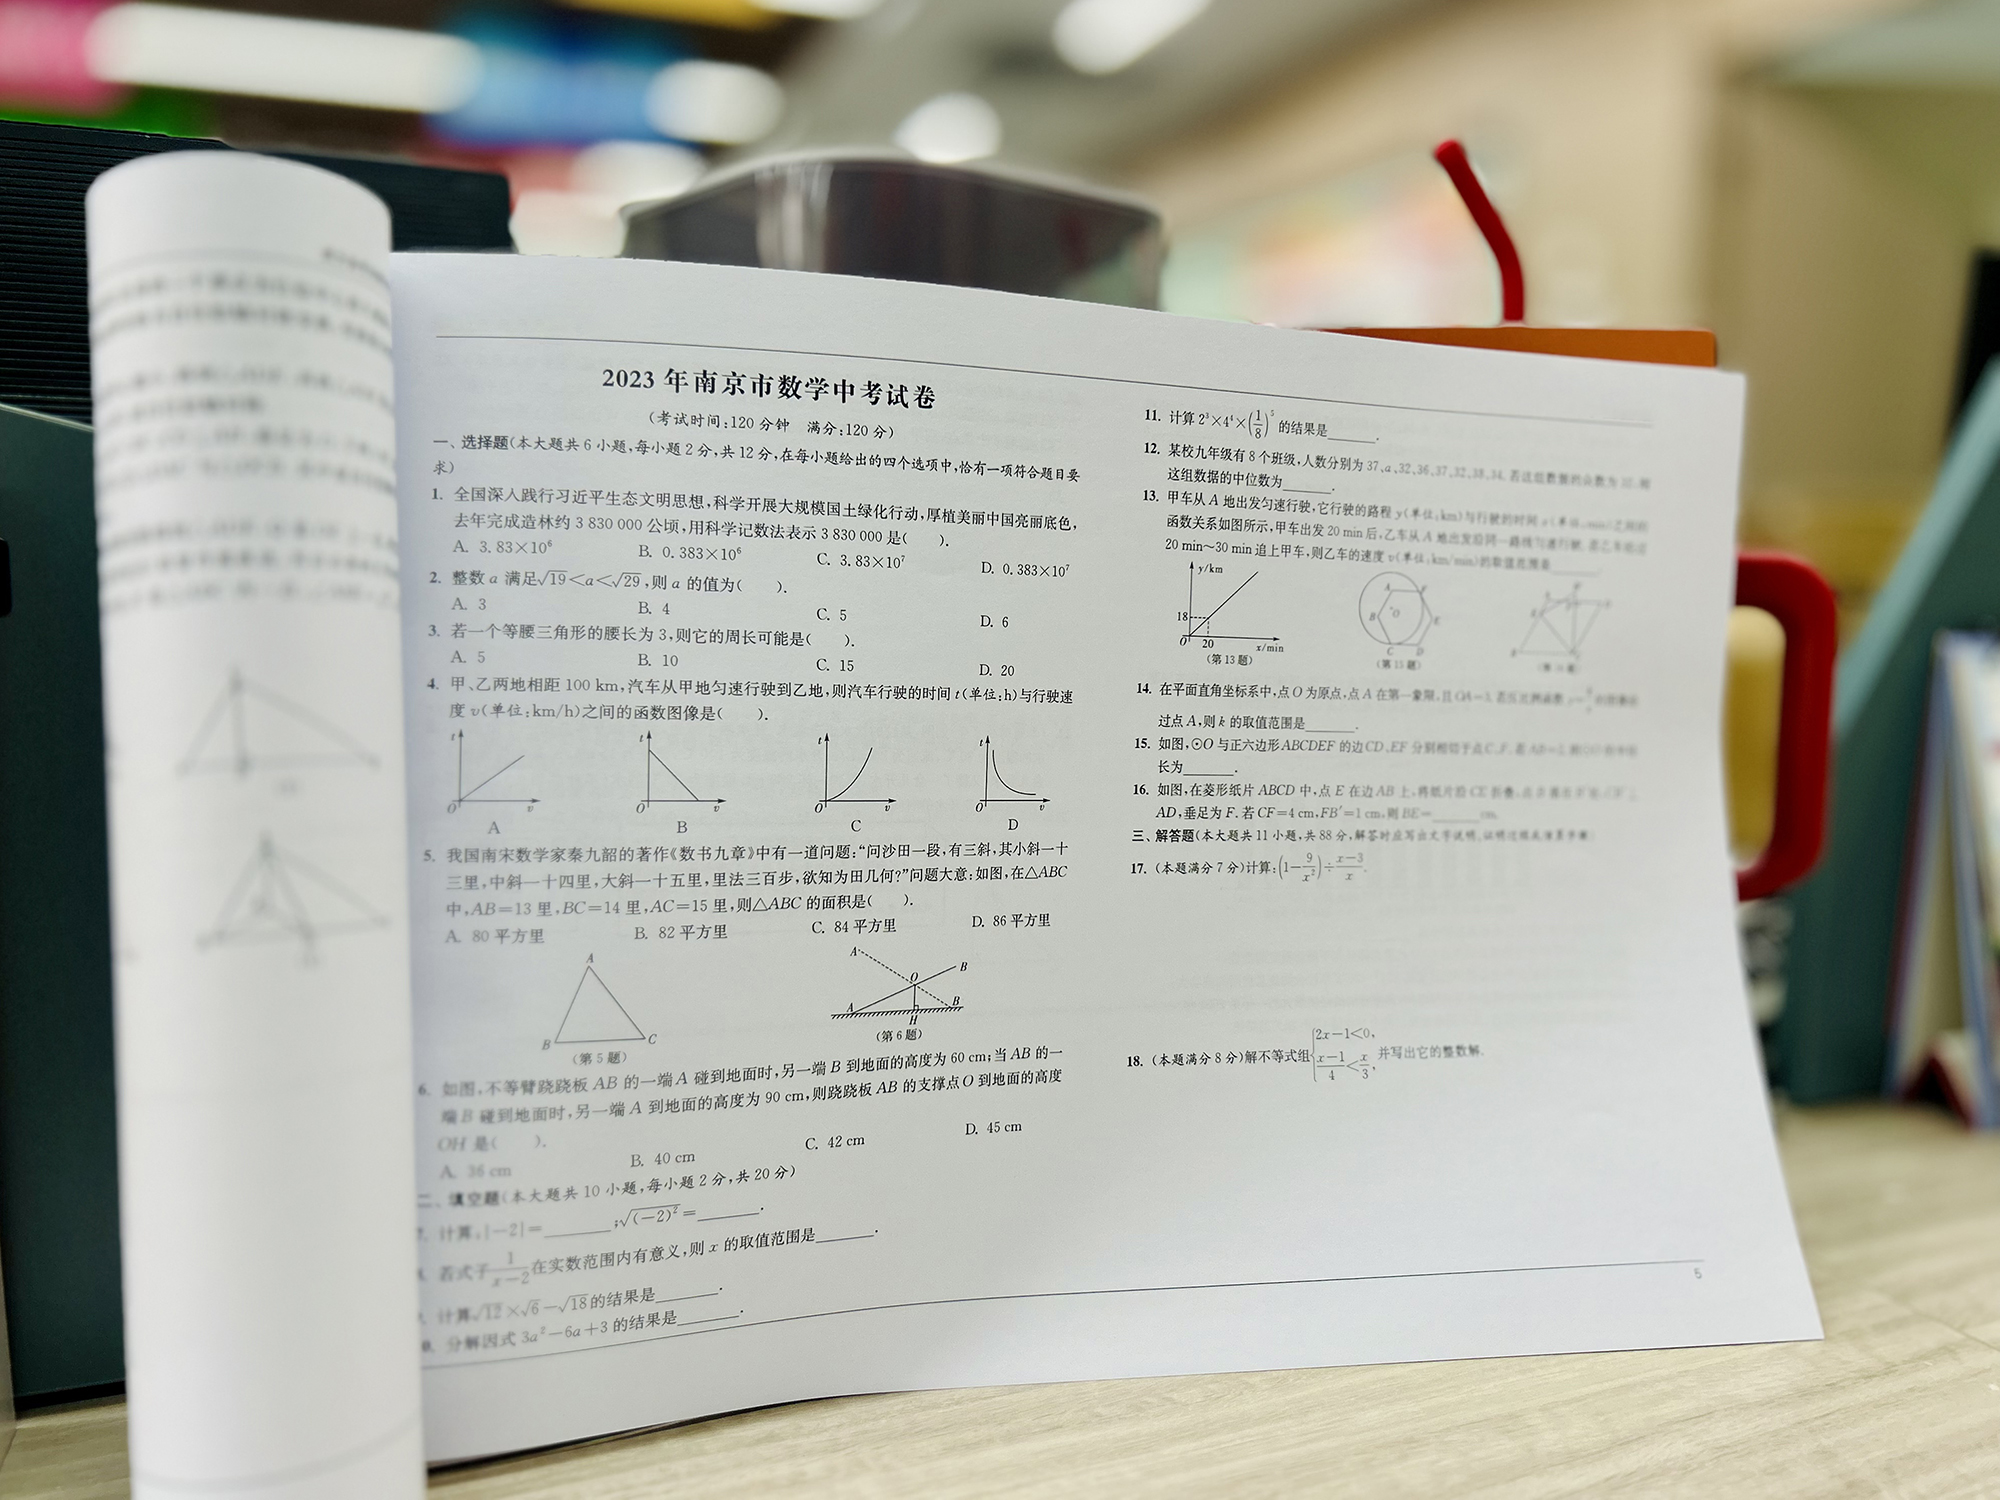 2023年南京市数学中考试卷
(考试时间:120分钟 满分:120分)
一、选择题(本大题共6小题,每小题2分,共12分,在每小题给出的四个选项中,恰有一项符合题目要
求)
1. 全国深入践行习近平生态文明思想,科学开展大规模国土绿化行动,厚植美丽中国亮丽底色,
去年完成造林约3 830 000公顷,用科学记数法表示3 830 000是( ).
A. 3.83×10⁶ B. 0.383×10⁶ C. 3.83×10⁷ D. 0.383×10⁷
2. 整数a满足√19<a<√29,则a的值为( ).
A. 3 B. 4 C. 5 D. 6
3. 若一个等腰三角形的腰长为3,则它的周长可能是( ).
A. 5 B. 10 C. 15 D. 20
4. 甲、乙两地相距100 km,汽车从甲地匀速行驶到乙地,则汽车行驶的时间t(单位:h)与行驶速
度v(单位:km/h)之间的函数图像是( ).
t O v t O v t O v t O v
A B C D
5. 我国南宋数学家秦九韶的著作《数书九章》中有一道问题:“问沙田一段,有三斜,其小斜一十
三里,中斜一十四里,大斜一十五里,里法三百步,欲知为田几何?”问题大意:如图,在△ABC
中,AB=13里,BC=14里,AC=15里,则△ABC的面积是( ).
A. 80平方里 B. 82平方里 C. 84平方里 D. 86平方里
A B C
(第5题)
A O B A H B
(第6题)
6. 如图,不等臂跷跷板AB的一端A碰到地面时,另一端B到地面的高度为60 cm;当AB的一
端B碰到地面时,另一端A到地面的高度为90 cm,则跷跷板AB的支撑点O到地面的高度
OH是( ).
A. 36 cm B. 40 cm C. 42 cm D. 45 cm
二、填空题(本大题共10小题,每小题2分,共20分)
计算:|−2|=______;√(−2)²=______.
若式子1/(x−2)在实数范围内有意义,则x的取值范围是______.
计算√12×√6−√18的结果是______.
分解因式3a²−6a+3的结果是______.
11. 计算2³×4⁴×(1/8)⁵的结果是______.
12. 某校九年级有8个班级,人数分别为37、a、32、36、37、32、38、34.若这组数据的众数为32,则
这组数据的中位数为______.
13. 甲车从A地出发匀速行驶,它行驶的路程y(单位:km)与行驶的时间x(单位:min)之间的
函数关系如图所示,甲车出发20 min后,乙车从A地出发沿同一路线匀速行驶.若乙车经过
20 min~30 min追上甲车,则乙车的速度v(单位:km/min)的取值范围是______.
y/km 18 O 20 x/min
(第13题)
A F B O E C D
(第15题)
14. 在平面直角坐标系中,点O为原点,点A在第一象限,且OA=3.若反比例函数y=
过点A,则k的取值范围是______.
15. 如图,⊙O与正六边形ABCDEF的边CD、EF分别相切于点C、F.若AB=2,则⊙O的半径
长为______.
16. 如图,在菱形纸片ABCD中,点E在边AB上,将纸片沿CE折叠,点
AD,垂足为F.若CF=4 cm,FB′=1 cm,则BE=______cm.
三、解答题(本大题共11小题,共88分,解答时应写出文字说明、证明过程或演算步骤)
17. (本题满分7分)计算:(1−9/x²)÷(x−3)/x.
18. (本题满分8分)解不等式组{2x−1<0, (x−1)/4<x/3, 并写出它的整数解.
5